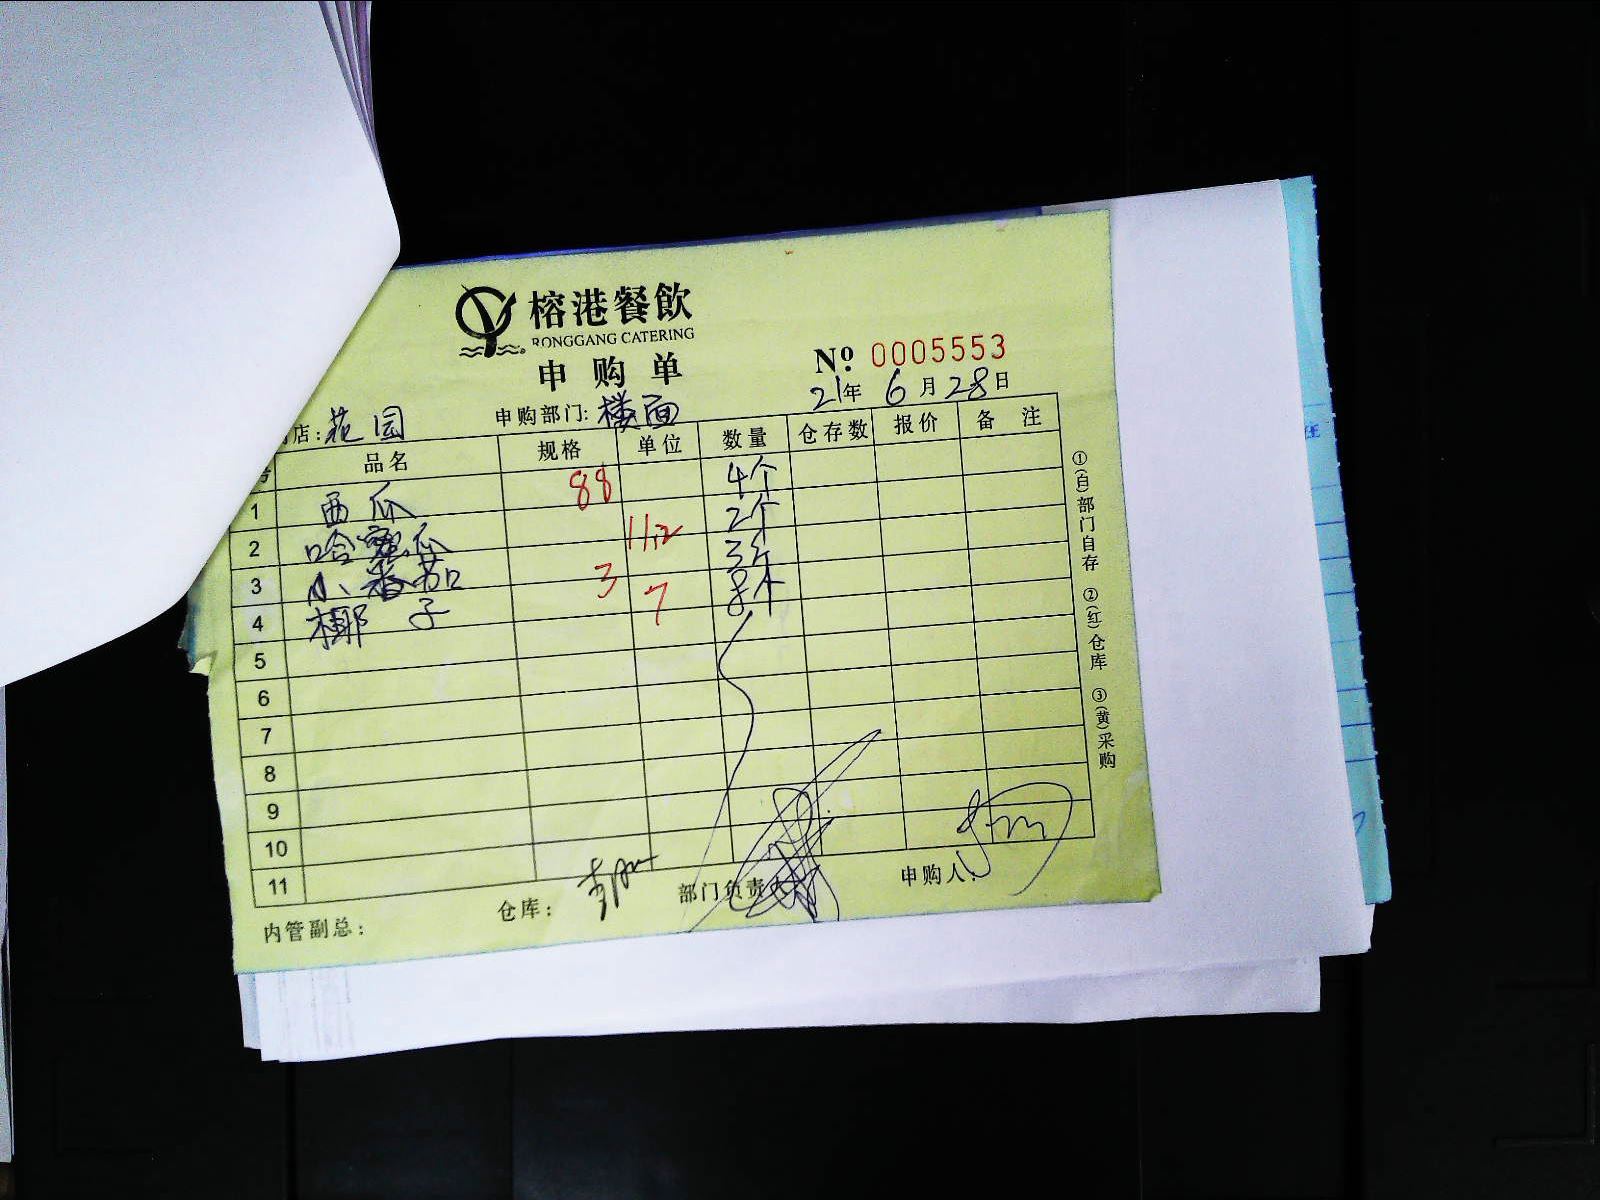 榕港餐飲
RONGGANG CATERING
申购单
№ 0005553
21年 6月28日
店:花园 申购部门:楼面
号 品名 规格 单位 数量 仓存数 报价 备注
1 西瓜 88 4个
2 哈密瓜 11.2 2个
3 小番茄 3 3斤
4 椰子 7 8个
5
6
7
8
9
10
11
内管副总: 仓库: 部门负责人 申购人:
①(白)部门自存 ②(红)仓库 ③(黄)采购